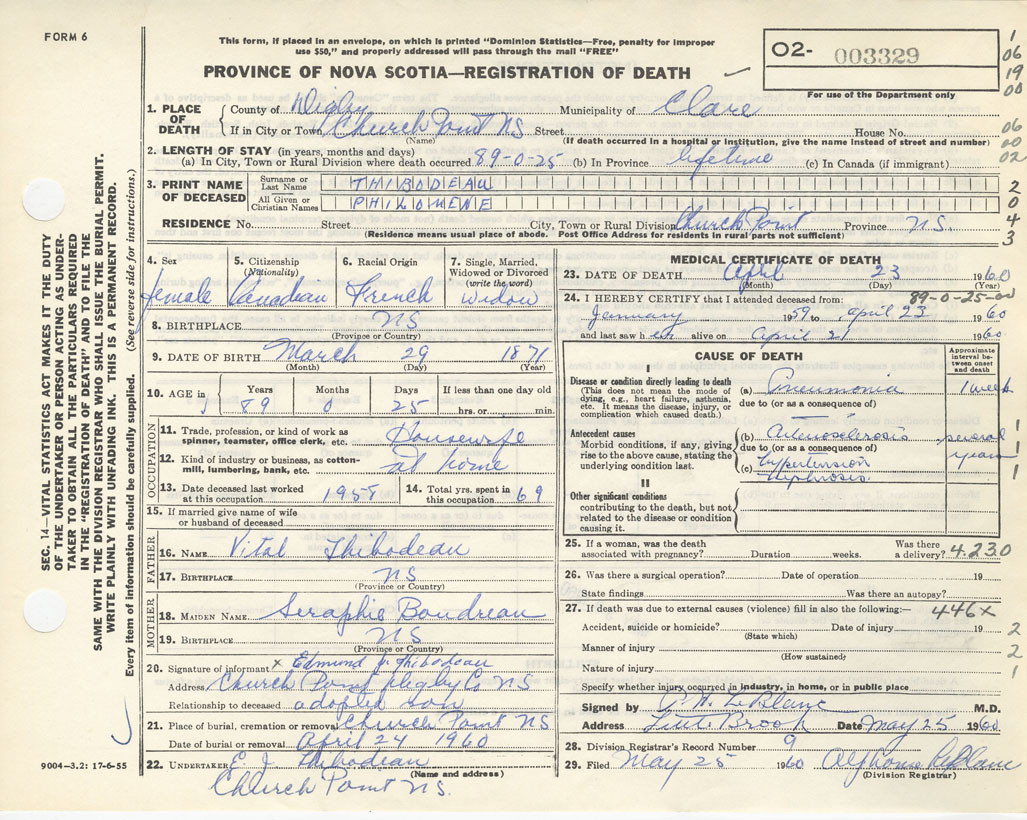 FORM 6
This form, if placed in an envelope, on which is printed "Dominion Statistics—Free, penalty for improper
use $50," and properly addressed will pass through the mail "FREE"
PROVINCE OF NOVA SCOTIA—REGISTRATION OF DEATH
O2- 003329
For use of the Department only
1
06
19
00
06
00
02
2
0
4
3
1. PLACE OF DEATH County of Digby Municipality of Clare
If in City or Town Church Point N.S. Street House No.
(Name) (If death occurred in a hospital or institution, give the name instead of street and number)
2. LENGTH OF STAY (in years, months and days)
(a) In City, Town or Rural Division where death occurred 89-0-25 (b) In Province lifetime (c) In Canada (if immigrant)
3. PRINT NAME OF DECEASED
Surname or Last Name THIBODEAU
All Given or Christian Names PHILOMENE
RESIDENCE No. Street City, Town or Rural Division Church Point Province N.S.
(Residence means usual place of abode. Post Office Address for residents in rural parts not sufficient)
4. Sex female
5. Citizenship (Nationality) Canadian
6. Racial Origin French
7. Single, Married, Widowed or Divorced (write the word) widow
8. BIRTHPLACE NS
(Province or Country)
9. DATE OF BIRTH March 29 1871
(Month) (Day) (Year)
10. AGE in Years 89 Months 0 Days 25 If less than one day old hrs. or min.
OCCUPATION
11. Trade, profession, or kind of work as spinner, teamster, office clerk, etc. Housewife
12. Kind of industry or business, as cotton-mill, lumbering, bank, etc. at home
13. Date deceased last worked at this occupation 1958
14. Total yrs. spent in this occupation 69
15. If married give name of wife or husband of deceased
FATHER
16. NAME Vital Thibodeau
17. BIRTHPLACE NS
(Province or Country)
MOTHER
18. MAIDEN NAME Seraphie Boudreau
19. BIRTHPLACE NS
(Province or Country)
20. Signature of informant x Edmund J. Thibodeau
Address Church Point Digby Co NS
Relationship to deceased adopted son
21. Place of burial, cremation or removal Church Point NS
Date of burial or removal April 24 1960
22. UNDERTAKER E J Thibodeau
(Name and address)
Church Point N.S.
9004—3.2: 17-6-55
MEDICAL CERTIFICATE OF DEATH
23. DATE OF DEATH April 23 1960
(Month) (Day) (Year)
89-0-25-00
24. I HEREBY CERTIFY that I attended deceased from:
January 1959 to april 23 1960
and last saw her alive on april 21 1960
CAUSE OF DEATH
Approximate interval between onset and death
I
Disease or condition directly leading to death
(This does not mean the mode of dying, e.g., heart failure, asthenia, etc. It means the disease, injury, or complication which caused death.)
(a) Pneumonia 1 week
due to (or as a consequence of)
Antecedent causes
Morbid conditions, if any, giving rise to the above cause, stating the underlying condition last.
(b) Arteriosclerosis several years
due to (or as a consequence of)
(c) hypertension
nephrosis.
1
1
1
II
Other significant conditions
contributing to the death, but not related to the disease or condition causing it.
25. If a woman, was the death associated with pregnancy? Duration weeks. Was there a delivery? 4230
26. Was there a surgical operation? Date of operation 19
State findings Was there an autopsy?
27. If death was due to external causes (violence) fill in also the following:— 446x
Accident, suicide or homicide? Date of injury 19
(State which)
Manner of injury
(How sustained)
Nature of injury
2
2
1
Specify whether injury occurred in industry, in home, or in public place
Signed by LeBlanc M.D.
Address Litt. Brook Date May 25 1960
28. Division Registrar's Record Number 9
29. Filed May 25 1960 Alphonse LeBlanc
(Division Registrar)
SEC. 14—VITAL STATISTICS ACT MAKES IT THE DUTY
OF THE UNDERTAKER OR PERSON ACTING AS UNDER-
TAKER TO OBTAIN ALL THE PARTICULARS REQUIRED
IN THE "REGISTRATION OF DEATH" AND TO FILE THE
SAME WITH THE DIVISION REGISTRAR WHO SHALL ISSUE THE BURIAL PERMIT.
WRITE PLAINLY WITH UNFADING INK. THIS IS A PERMANENT RECORD.
Every item of information should be carefully supplied. (See reverse side for instructions.)